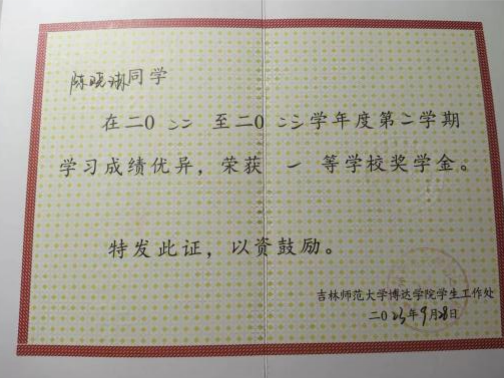 陈晓琳同学
在二〇二二至二〇二三学年度第二学期
学习成绩优异，荣获一等学校奖学金。
特发此证，以资鼓励。
吉林师范大学博达学院学生工作处
二〇23年9月28日